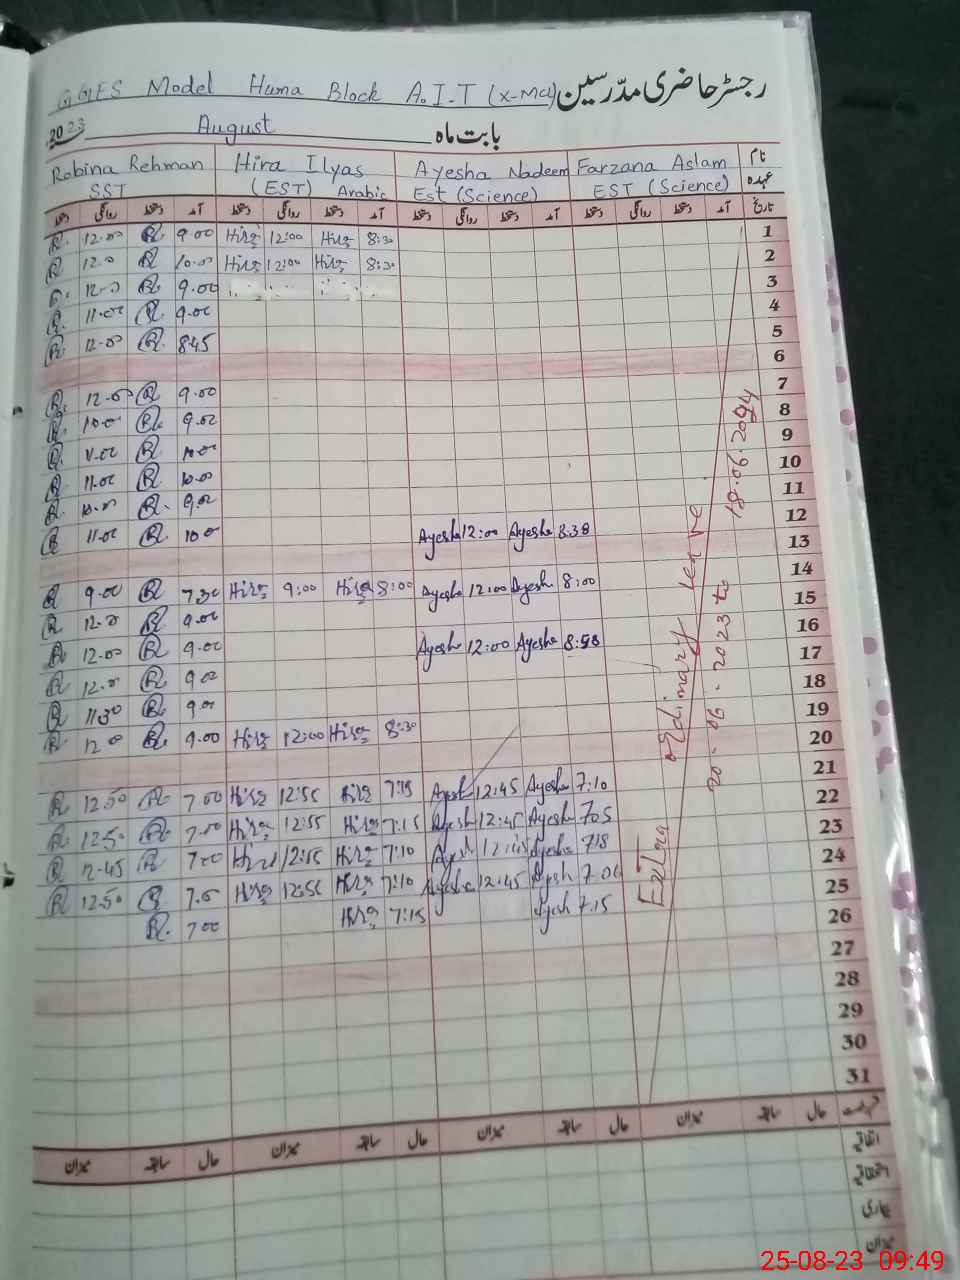 GGES Model Huma Block A.I.T (X-MCL) رجسٹر حاضری مدّرسین
2023 August بابت ماہ
Robina Rehman Hira Ilyas Ayesha Nadeem Farzana Aslam نام
SST (EST) Arabic Est (Science) EST (Science) عہدہ
دستخط روانگی دستخط آمد دستخط روانگی دستخط آمد دستخط روانگی دستخط آمد دستخط روانگی دستخط آمد تاریخ
R. 12.00 R. 9.00 Hira 12:00 Hira 8:30 1
R 12.0 R 10.00 Hira 12:00 Hira 8:30 2
R. 9.00 3
R. 11.00 R. 9.00 4
R. 12.00 R. 8.45 5
6
R. 12.00 R. 9.00 7
R. 10.00 R. 9.00 8
R. 11.00 R. 10.00 9
R. 11.00 R. 10.00 10
R. 10.00 R. 9.00 11
R 11.00 R. 10.0 Ayesha 12:00 Ayesha 8.38 12
13
R 9.00 R 7.30 Hira 9:00 Hira 8:00 Ayesha 12:00 Ayesh 8:00 14
R 12.0 R 9.00 15
R. 12.00 R 9.00 Ayesha 12:00 Ayesha 16
R 12.0 R 9.00 17
R 11.30 R. 9.00 18
R. 12.0 R. 9.00 Hira 12:00 Hira 8:30 19
20
R 12.50 R 7.00 Hira 12:55 Hira 7:15 Ayesh 12:45 Ayesha 7:10 21
R. 12.50 R. 7.00 Hira 12:55 Hira 7:15 Ayesh 12:45 Ayesha 7:05 22
R 12.45 R 7.00 Hira 12:55 Hira 7:10 Ayesh 12:45 Ayesha 7:18 23
R 12.50 R 7.0 Hira 12:55 Hira 7:10 Ayesha 12:45 Ayesh 24
R. 7.00 Hira 7:15 Ayesh 7.15 25
26
27
28
29
30
31
Extra ordinary leave
20-06-2023 to
18.06.2024
میزان سابقہ حال میزان سابقہ حال میزان سابقہ حال میزان سابقہ حال رخصت
اتفاقیہ
استحقاقیہ
بیماری
میزان
25-08-23 09:49